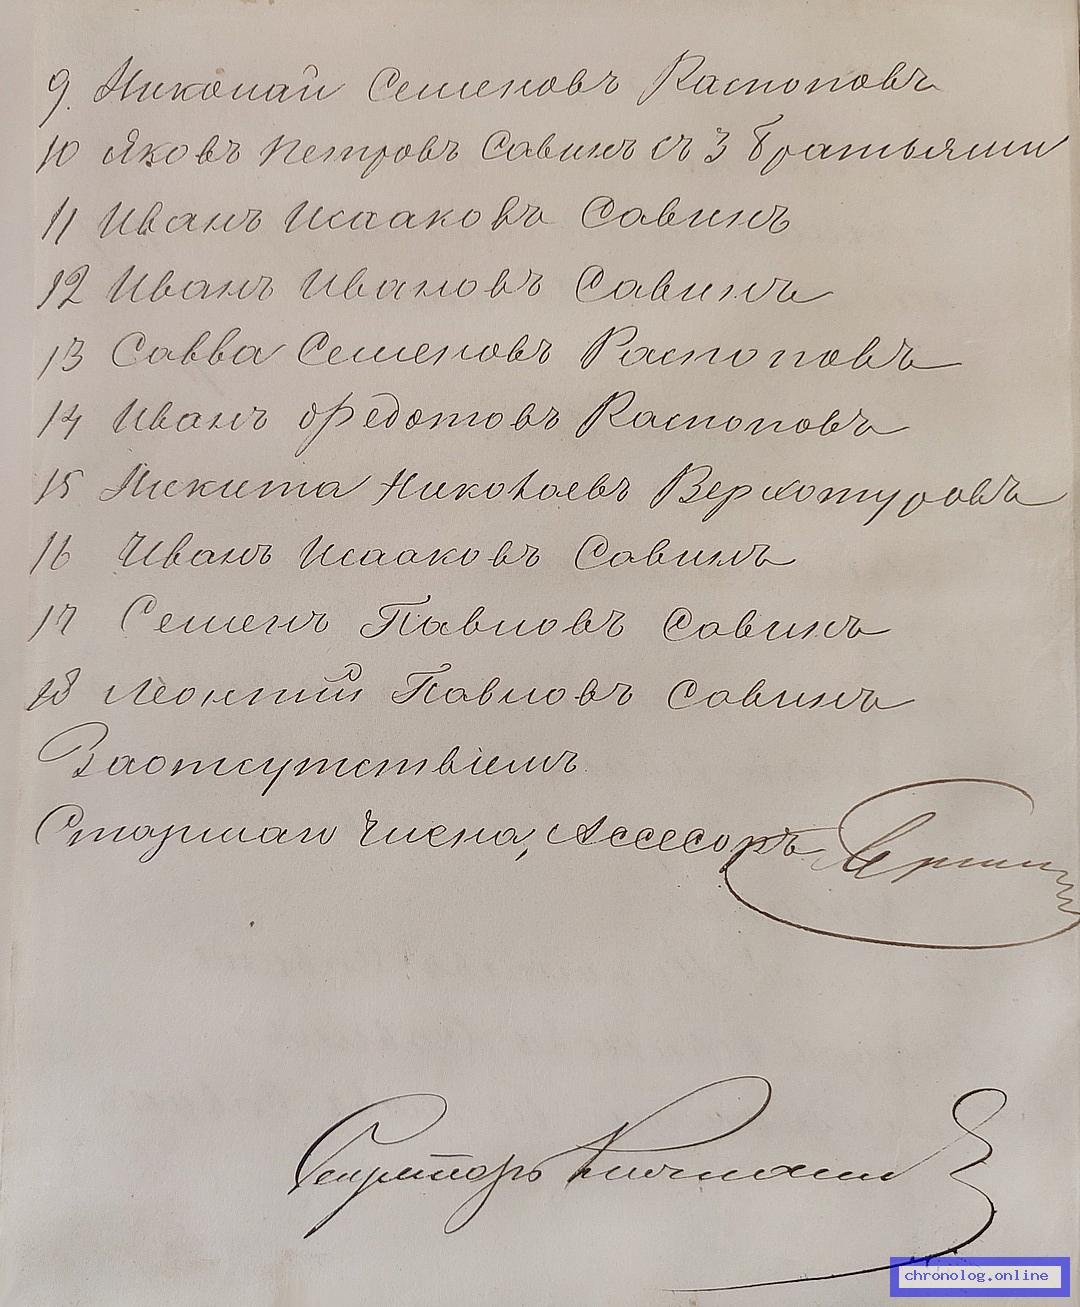 9. Николай Семеновъ Распоповъ
10 Яковъ Петровъ Савинъ съ 3 братьями
11 Иванъ Исааковъ Савинъ
12 Иванъ Ивановъ Савинъ
13 Савва Семеновъ Распоповъ
14 Иванъ Федотовъ Распоповъ
15 Никита Николаевъ Верхотуровъ
16 Иванъ Исааковъ Савинъ
17 Семенъ Павловъ Савинъ
18 Леонтий Павловъ Савинъ
За отсутствіемъ
Старшаго Члена, Ассесоръ
Секретарь
chronolog.online